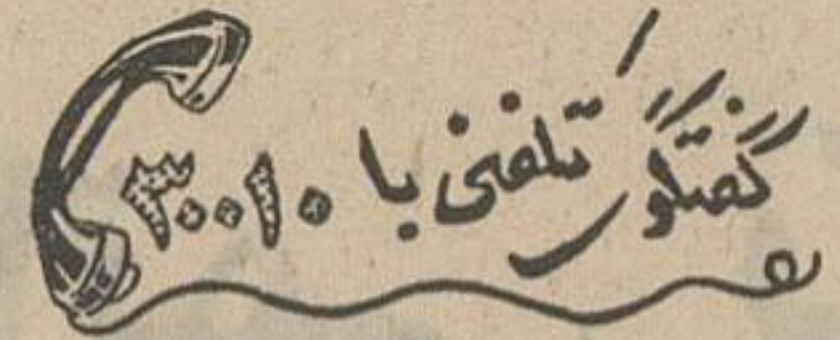 گفتگوی تلفنی با ۳۰۰۱۰